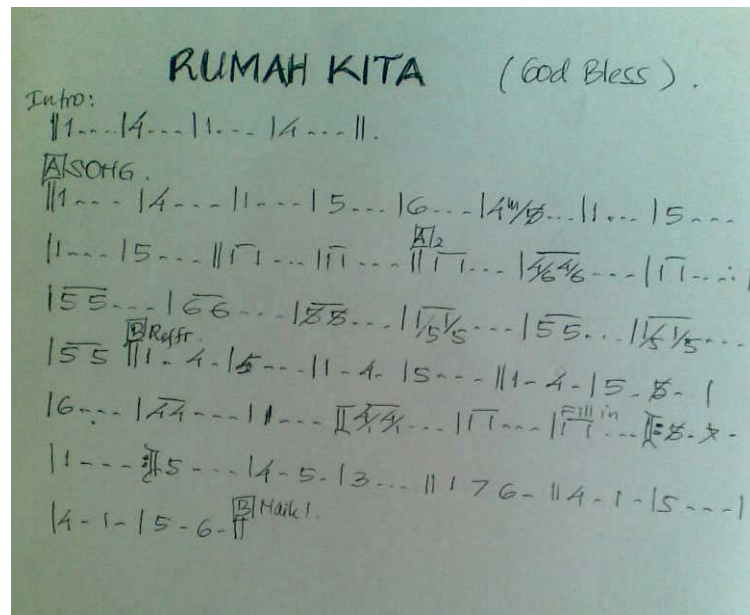 RUMAH KITA (God Bless).
Intro:
||1...|4...|1...|4...||.
A SONG.
||1...|4...|1...|5...|6...|4m/8...|1...|5...
|1...|5...||1 1...|1 1...|| A2 1 1...|4/6 4/6...|1 1...|
|5 5...|6 6...|8 8...|1/5 1/5...|5 5...|1/5 1/5...
|5 5 B Reffr. ||1-4-|5---|1-4-|5---||1-4-|5-8-|
|6...|4 4...|1...[4/1 4/1...|1 1...| Fill in 1 1...
|1---:]5---|4-5-|3...||1 7 6-||4-1-|5---|
|4-1-|5-6-|| B Naik 1.